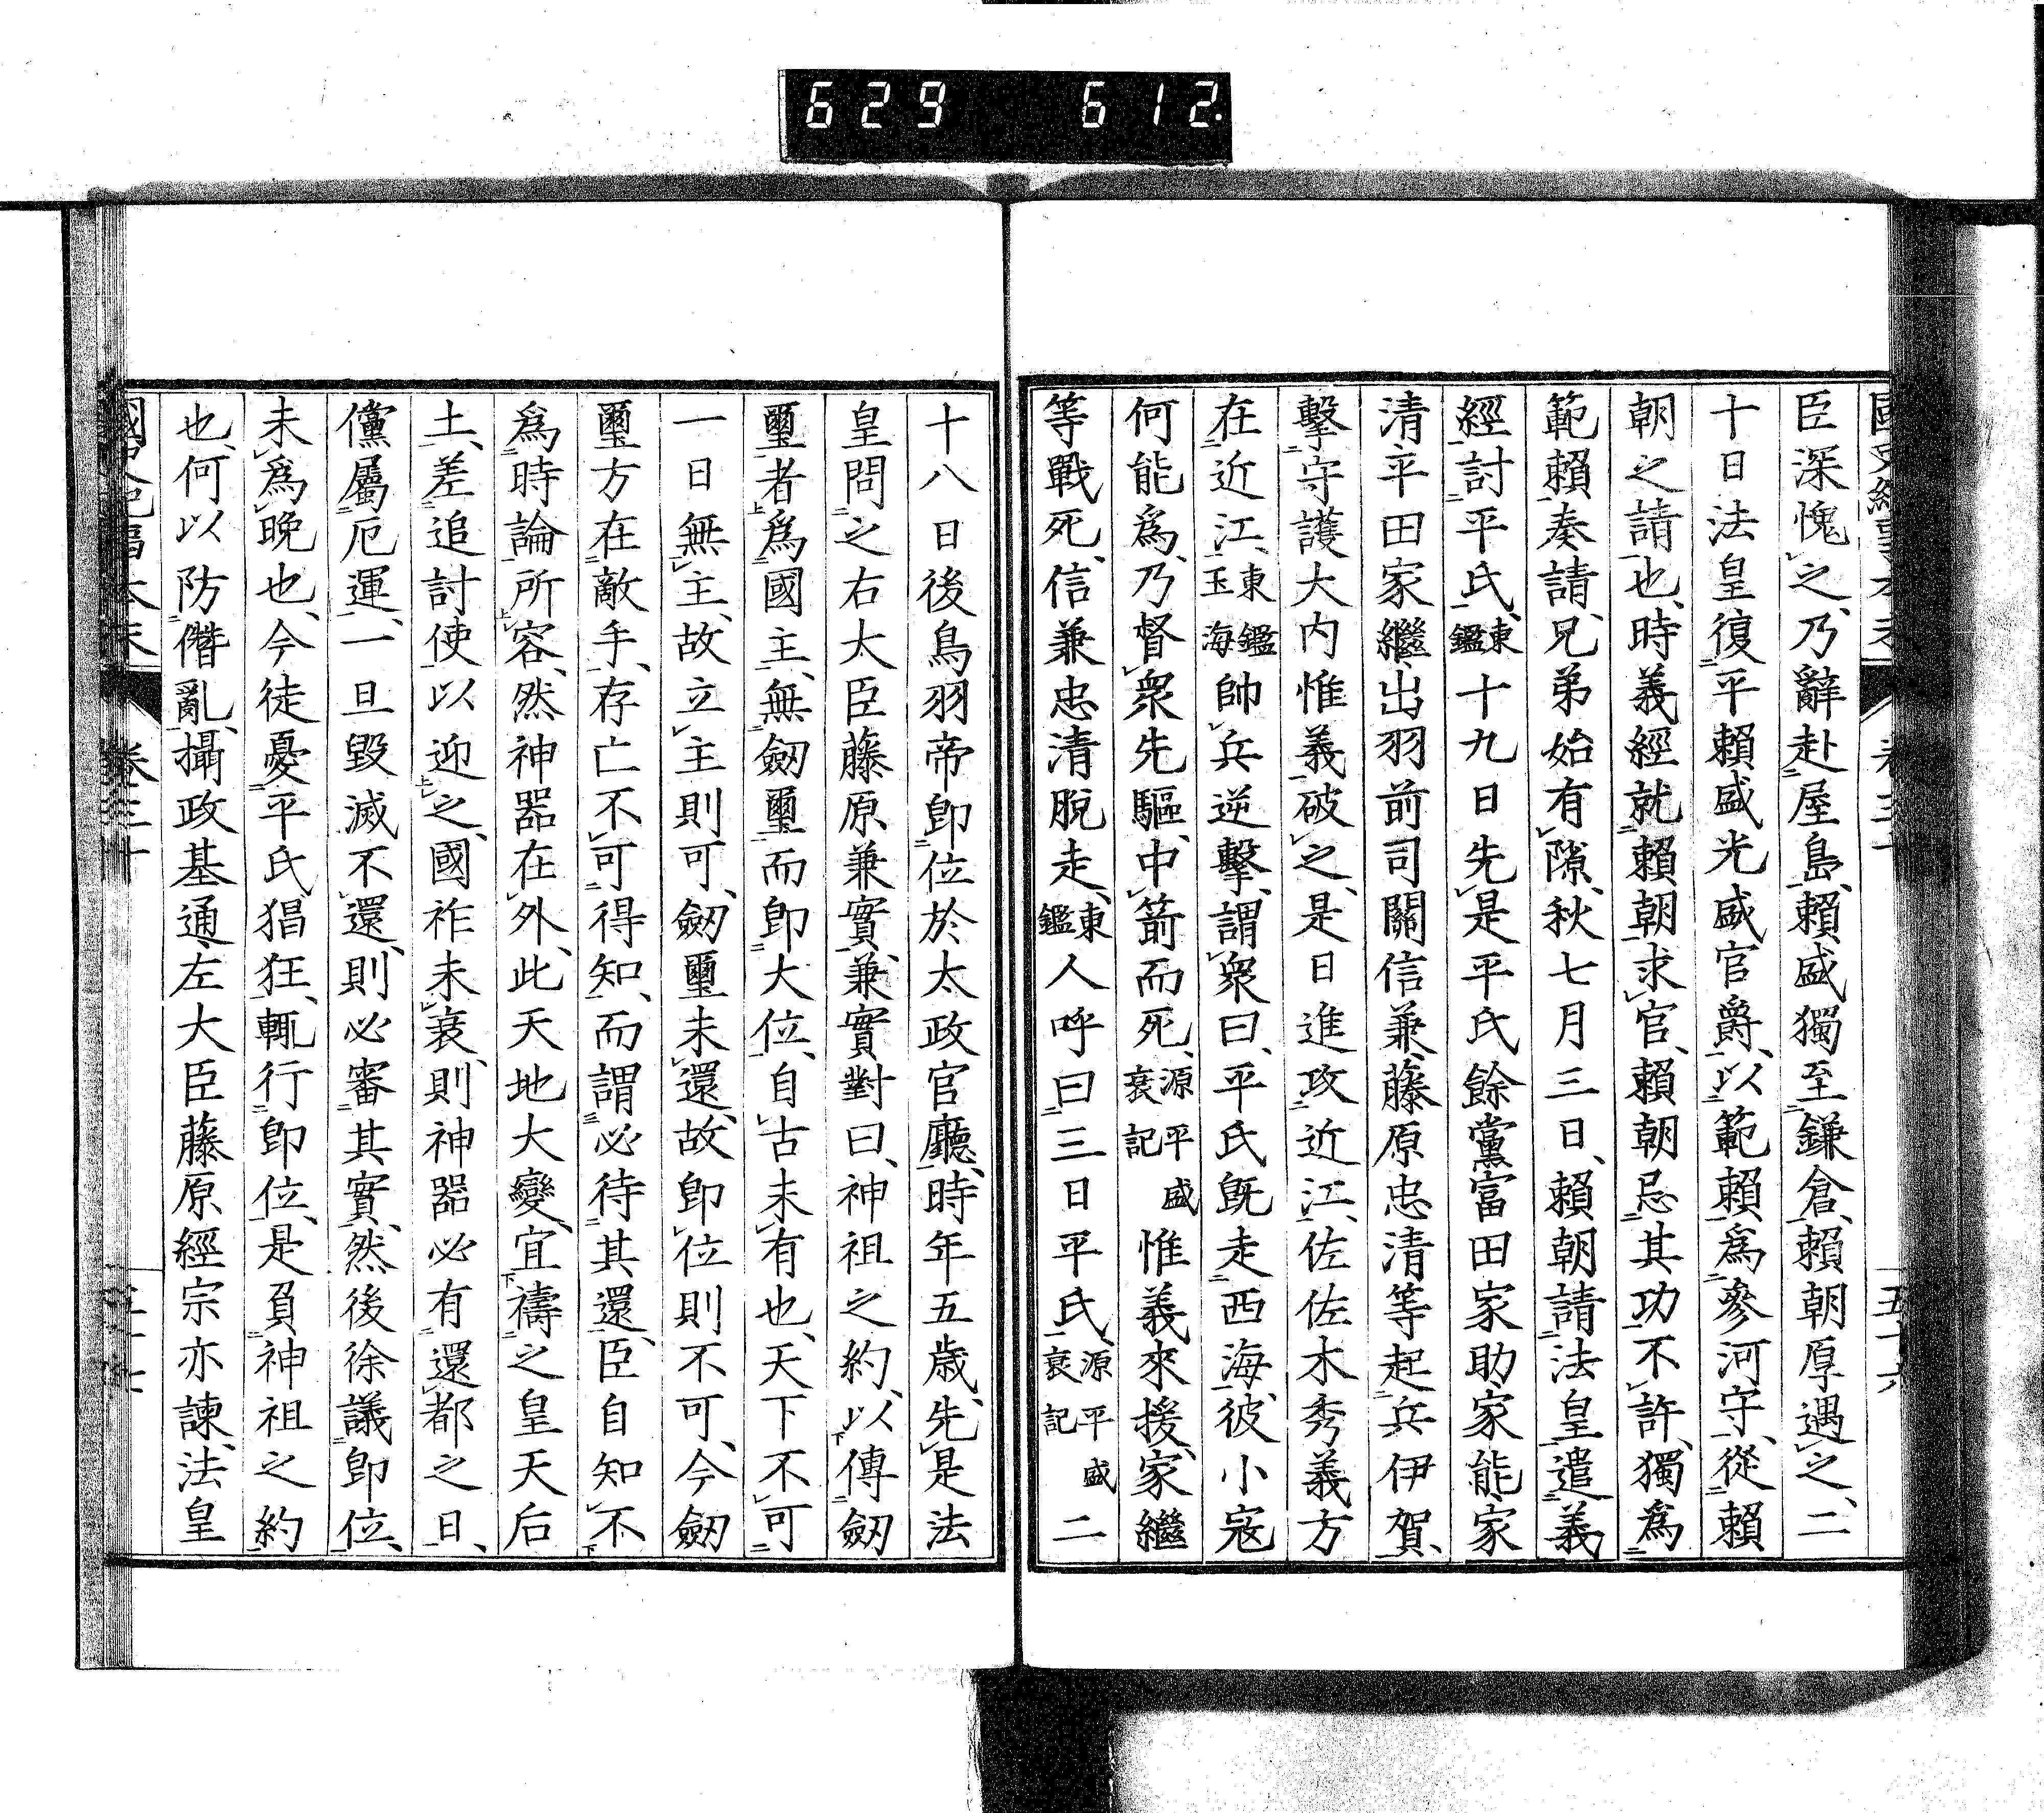 629 612
臣深愧之、乃辭赴屋島、賴盛獨至鎌倉、賴朝厚遇之、二
十日法皇復平賴盛光盛官爵、以範賴爲參河守、從賴
朝之請也、時義經就賴朝求官、賴朝忌其功不許、獨爲
範賴奏請、兄弟始有隙、秋七月三日、賴朝請法皇遣義
經討平氏、東鑑十九日先是平氏餘黨富田家助家能、家
清平田家繼、出羽前司關信兼、藤原忠清等起兵伊賀、
擊守護大內惟義破之、是日進攻近江、佐佐木秀義方
在近江、東鑑玉海帥兵逆擊、謂衆曰、平氏既走西海、彼小寇
何能爲、乃督衆先驅、中箭而死、源平盛衰記惟義來援、家繼
等戰死、信兼忠清脫走、東鑑人呼曰三日平氏、源平盛衰記二
十八日後鳥羽帝卽位於太政官廳、時年五歲、先是法
皇問之右大臣藤原兼實、兼實對曰、神祖之約、以傳劒
璽者爲國主、無劒璽而卽大位、自古未有也、天下不可
一日無主、故立主則可、劒璽未還、故卽位則不可、今劒
璽方在敵手、存亡不可得知、而謂必待其還、臣自知不
爲時論所容、然神器在外、此天地大變、宜禱之皇天后
土、差追討使以迎之、國祚未衰、則神器必有還都之日、
儻屬厄運、一旦毀滅不還、則必審其實、然後徐議卽位、
未爲晚也、今徒憂平氏猖狂、輒行卽位、是負神祖之約
也、何以防僭亂、攝政基通、左大臣藤原經宗亦諫、法皇